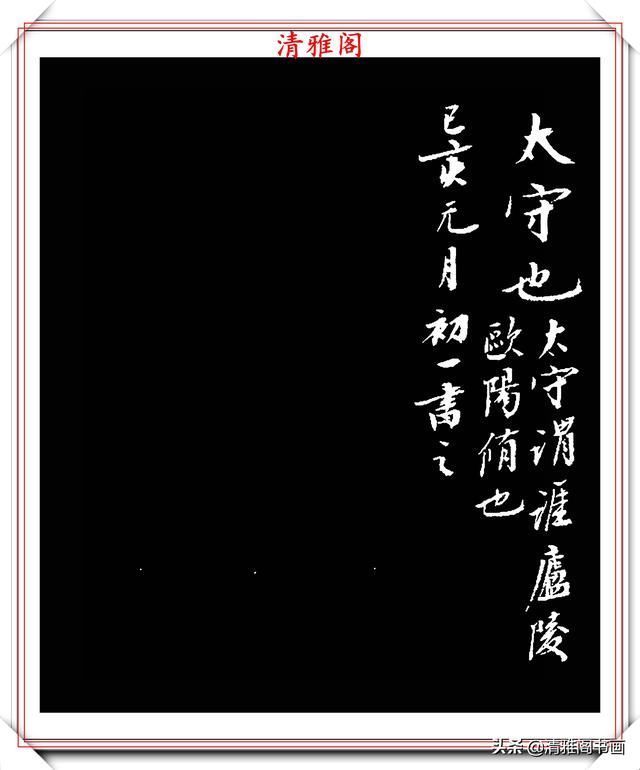 清雅阁
太守也太守谓谁廬陵
歐陽脩也
己亥元月初一書之
头条@清雅阁书画